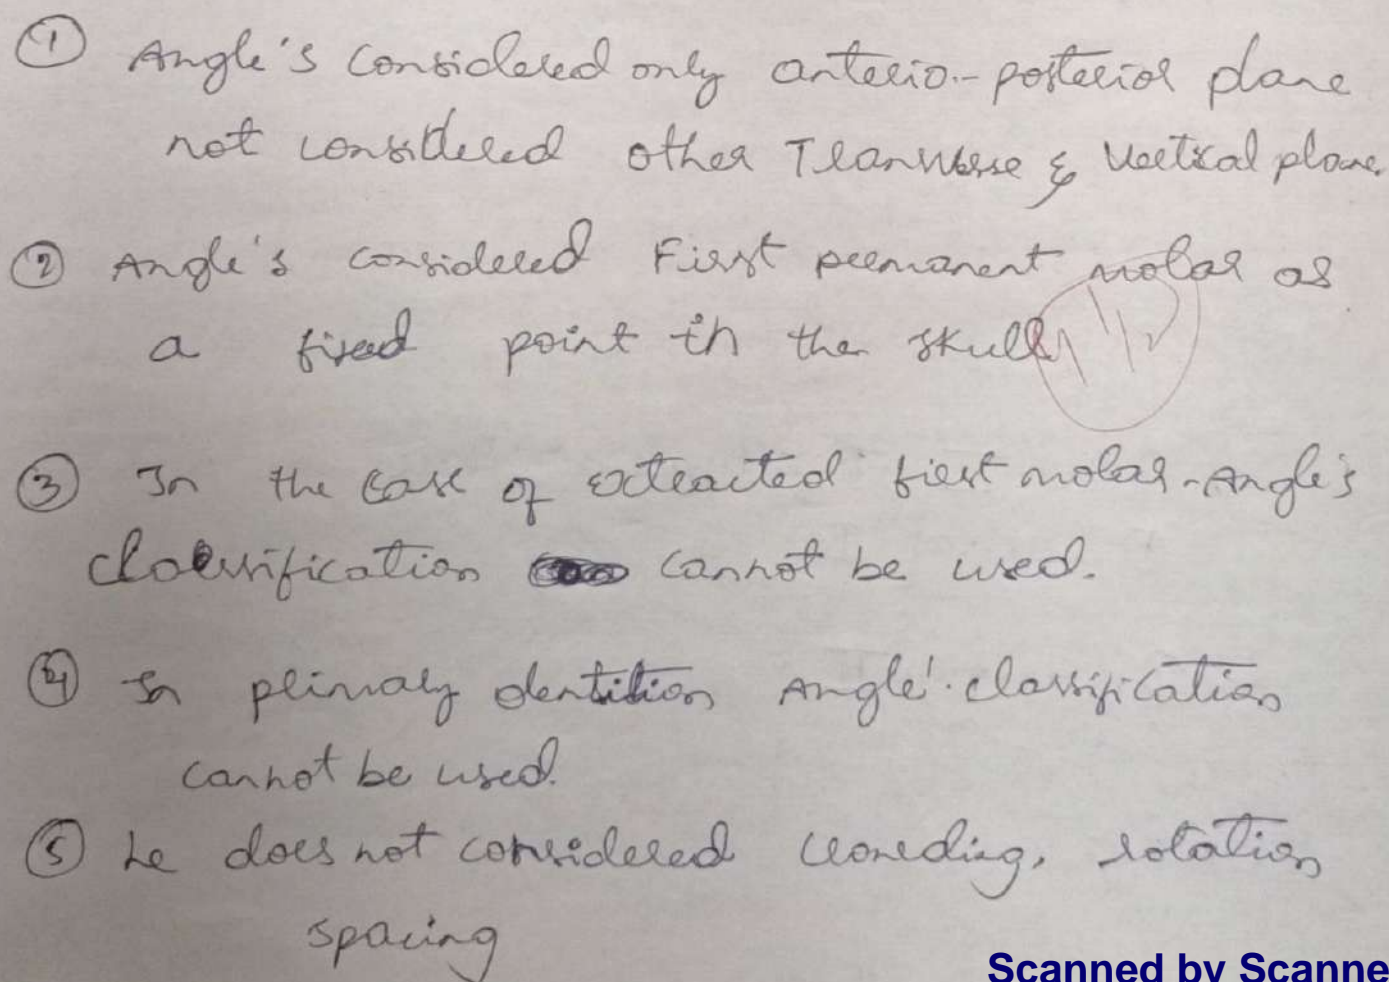 ① Angle's considered only anterio-posterior plane
not considered other Tranverse & Vertical plane.
② Angle's considered First permanent molar as
a fixed point in the skull
③ In the case of extracted first molar - Angle's
classification cannot be used.
④ In primary dentition Angle'. classification
cannot be used.
⑤ he does not considered crowding, rotation
spacing
Scanned by Scanne